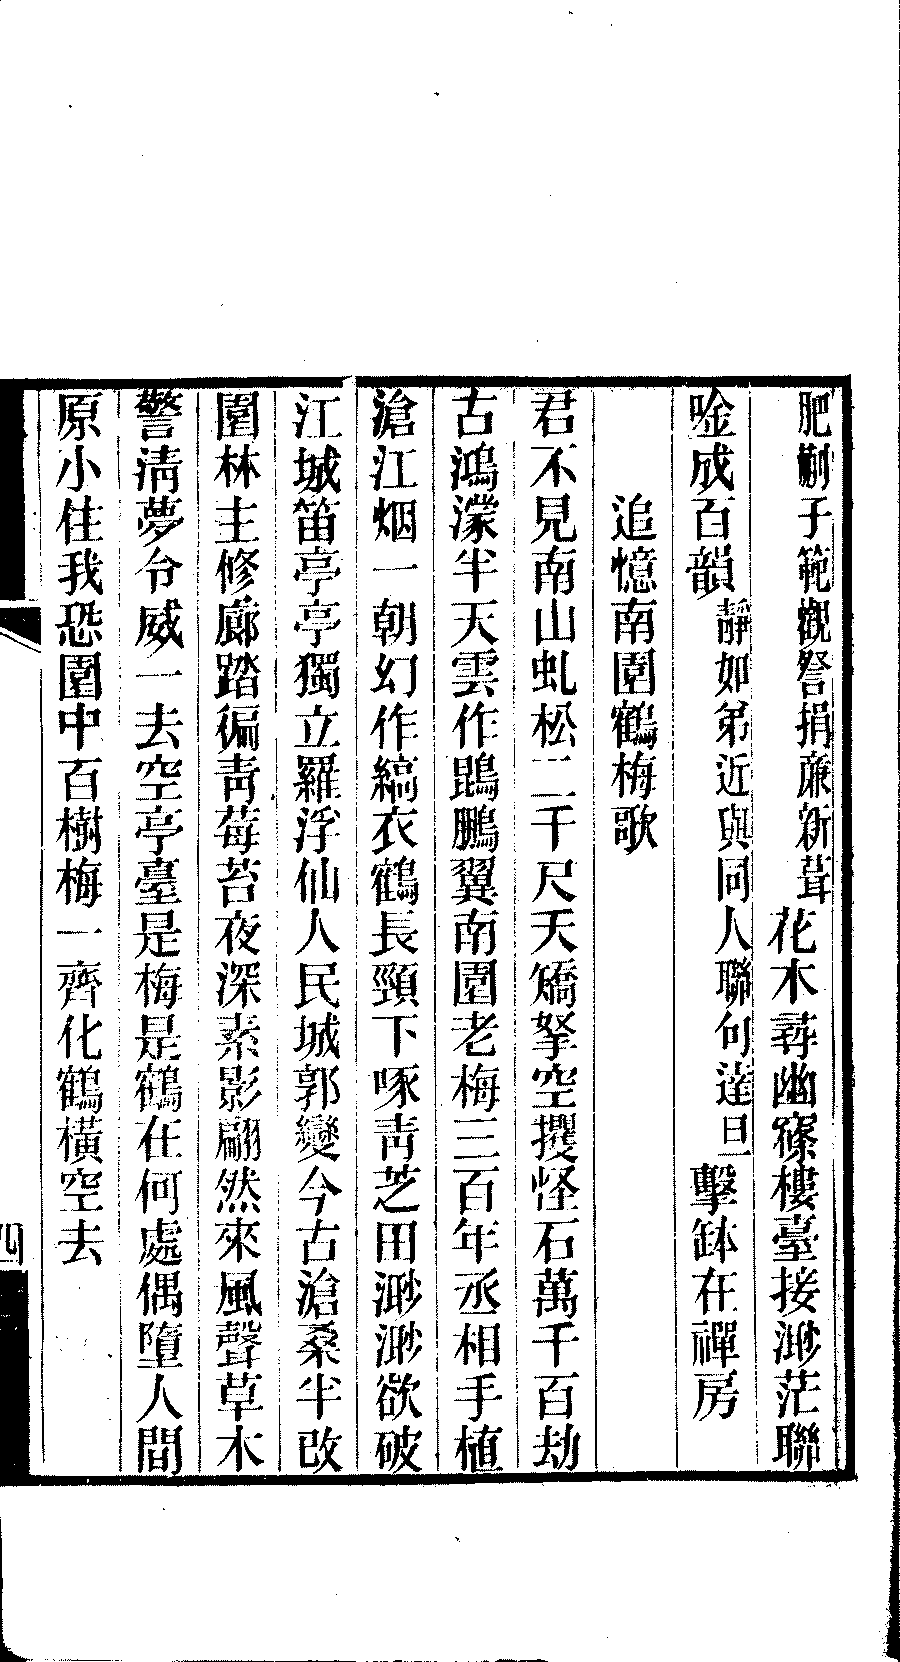 肥蒯子範觀詧捐廉新葺花木尋幽窱樓臺接渺茫聯
唫成百韻靜如弟近與同人聯句達旦擊鉢在禪房
追憶南園鶴梅歌
君不見南山虬松二千尺夭矯拏空攫怪石萬千百劫
古鴻濛半天雲作鵾鵬翼南園老梅三百年丞相手植
滄江烟一朝幻作縞衣鶴長頸下啄靑芝田渺渺欲破
江城笛亭亭獨立羅浮仙人民城郭變今古滄桑半改
園林主修廊踏徧靑莓苔夜深素影翩然來風聲草木
警淸夢令威一去空亭臺是梅是鶴在何處偶墮人間
原小住我恐園中百樹梅一齊化鶴橫空去
四